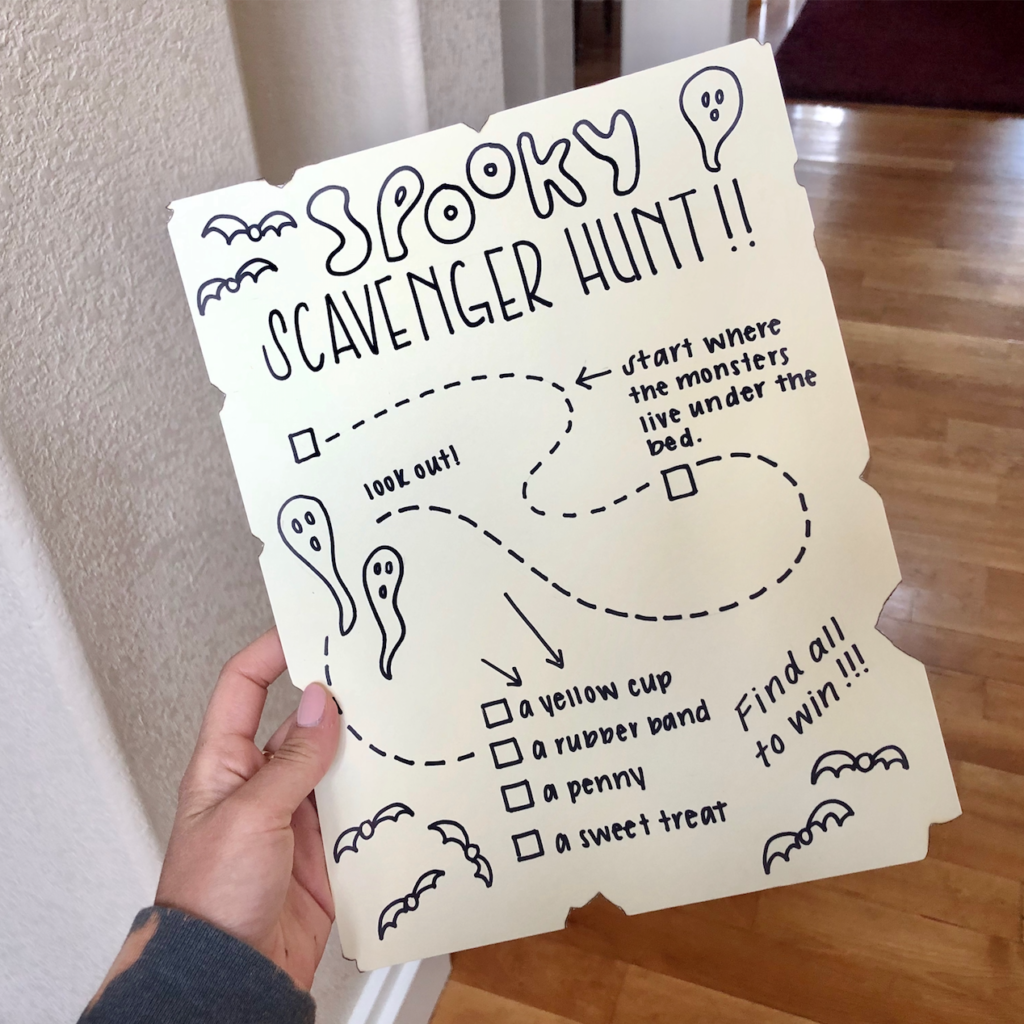 SPOOKY
SCAVENGER HUNT!!
start where
the monsters
live under the
bed.
look out!
a yellow cup
a rubber band
a penny
a sweet treat
Find all
to win!!!